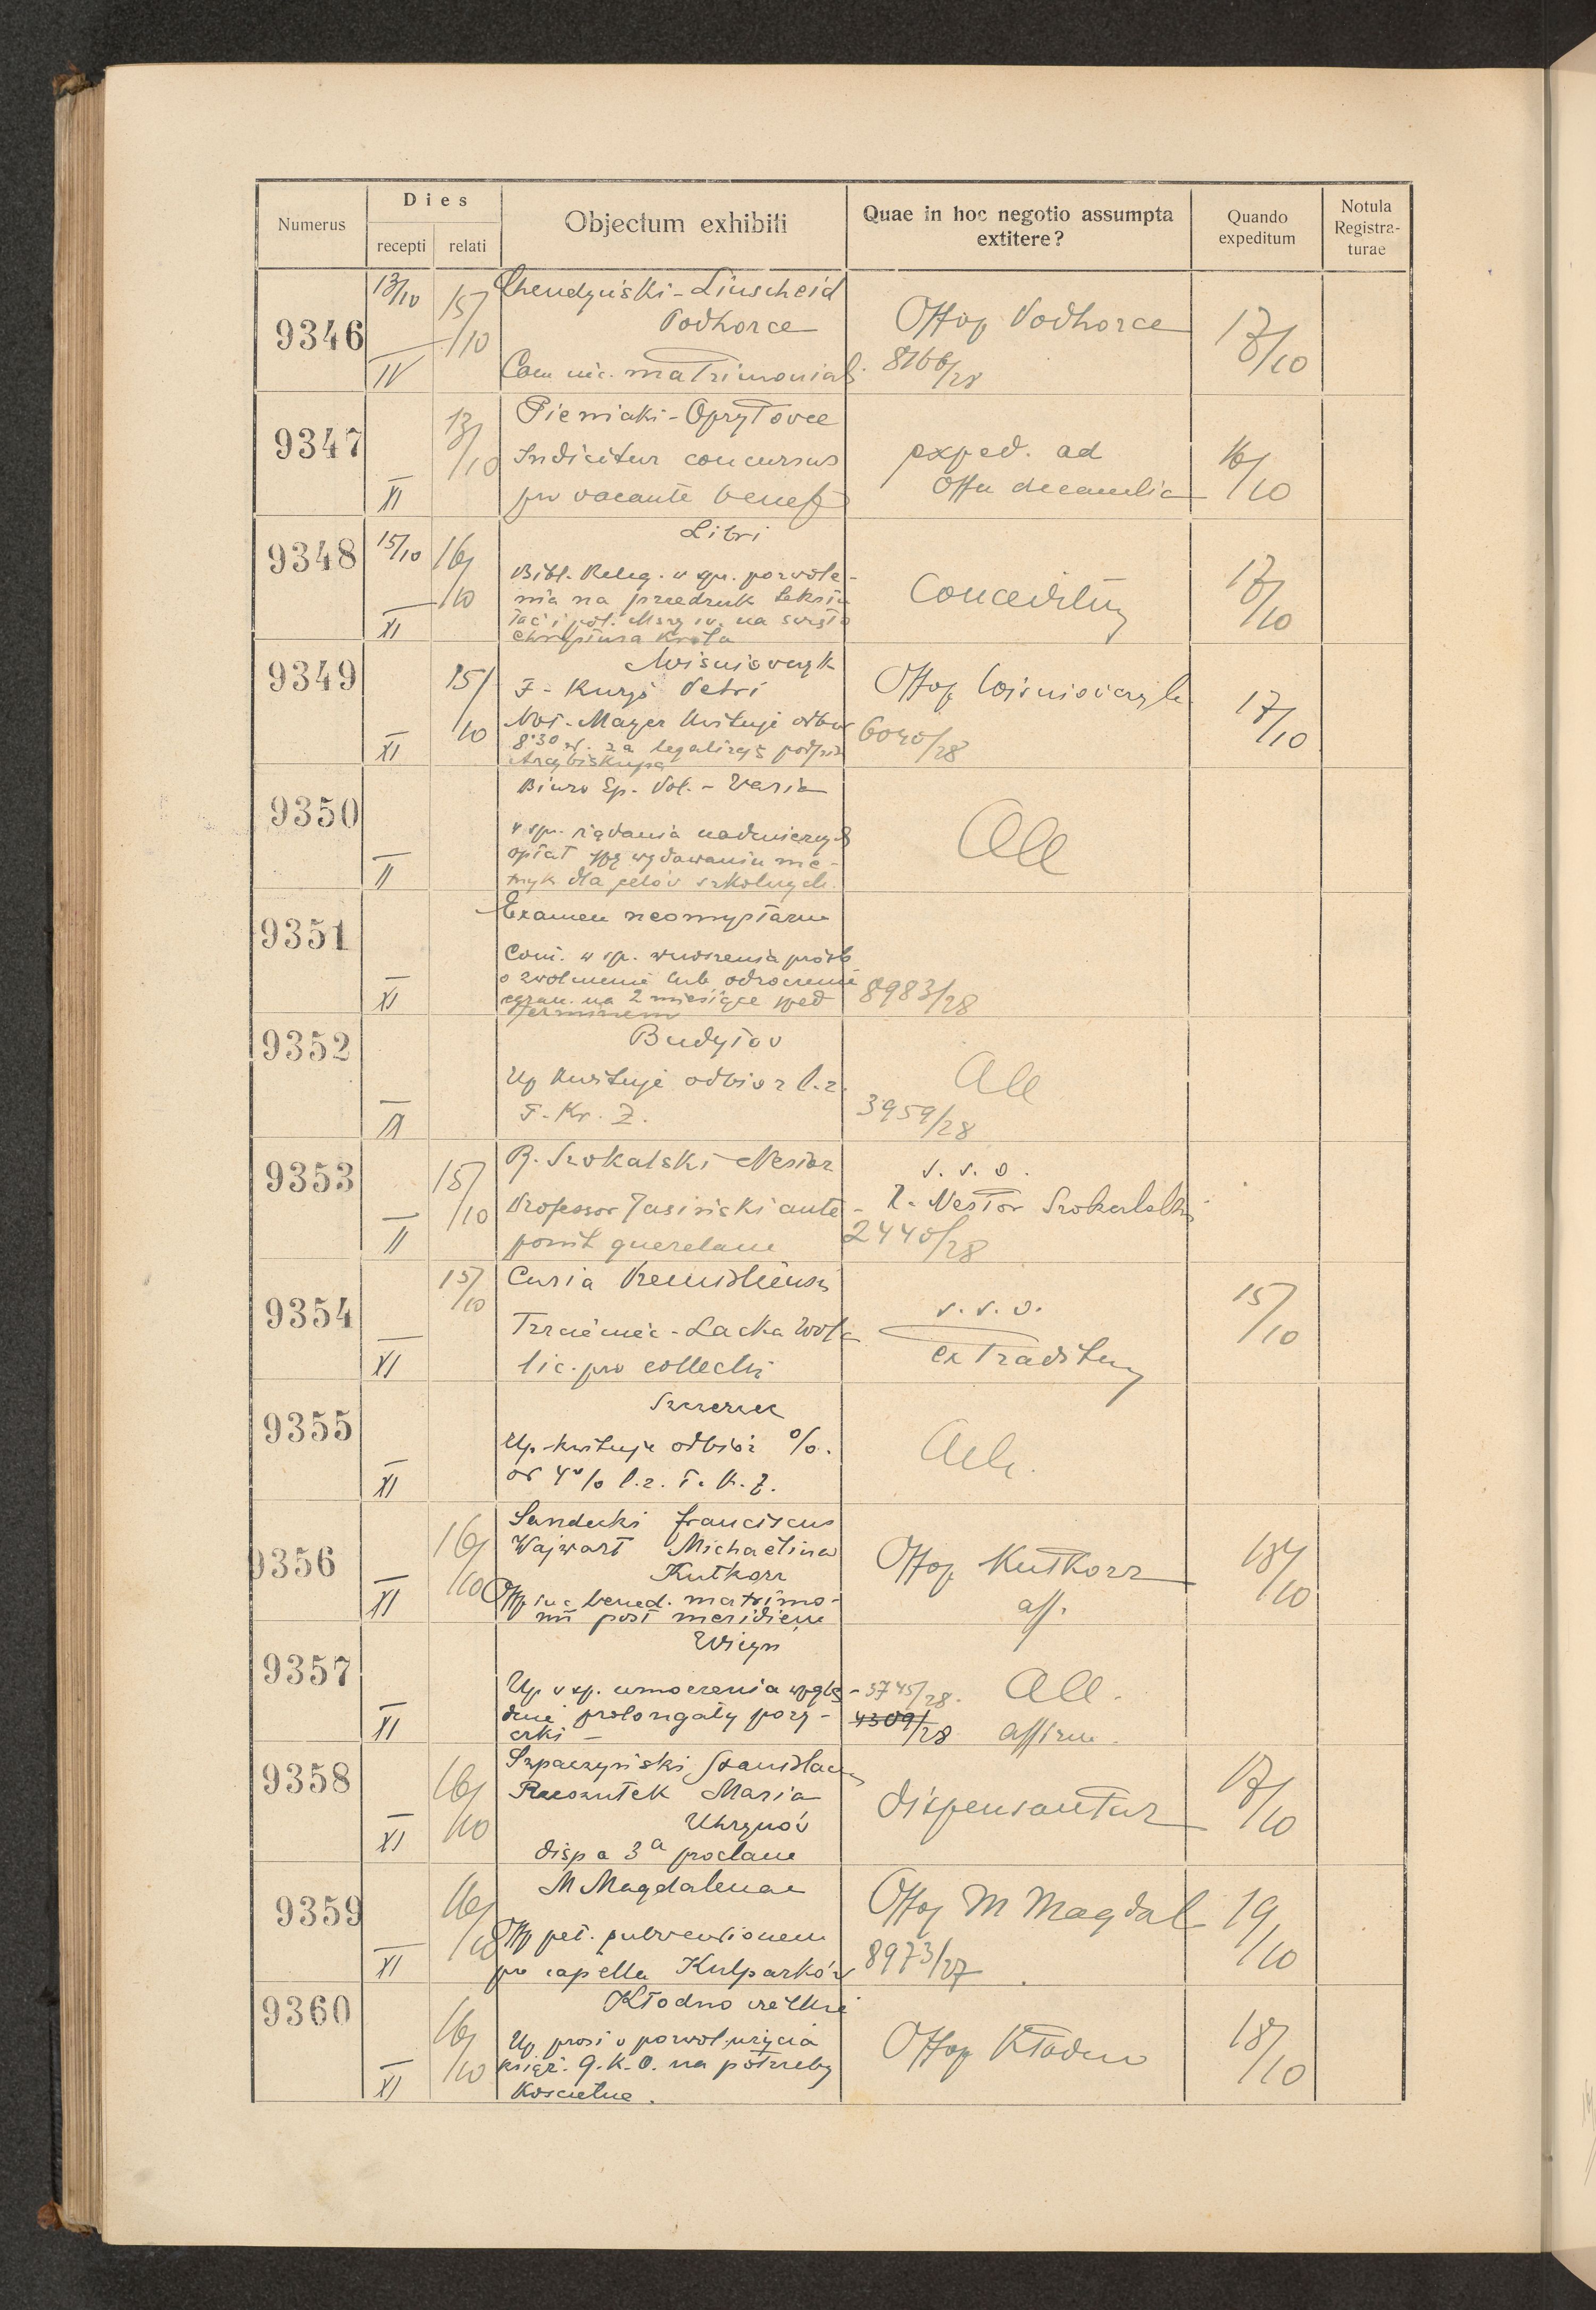 Numerus
Dies
recepti relati
Objectum exhibiti
Quae in hoc negotio assumpta
extitere?
Quando
expeditum
Notula
Registra-
turae
9346
13/10
15/10
IV
Chendyński - Linscheid
Podhorce
matrimonial.
Offoq Podhorce
8166/28
17/10
9347
13/10
XI
Pieniaki - Opryłovce
Indicitur concursus
pro vacante benef
exped. ad
Offa decanalia
16/10
9348
15/10
16/10
XI
Libri
Bibl. Relig. w spr. pozwole-
nia na przedruk tekstu
łać i pol. Mszy św. na święto
Chrystusa Króla
Conceditur
17/10
9349
15/10
XI
Wiśniovczyk
F - Kuryś Petri
Not. Mayer kwituje odbiór
8.30 zł. za legalizację podpisu
Arcybiskupa
Offoq Wiśniowczyk
6040/28
17/10
9350
II
Biuro Ep. Pol. - Varia
w spr. żądania nadmiernych
opłat przy wydawaniu me-
tryk dla celów szkolnych.
All
9351
XI
Examen neomystarum
Com. w sp. wnoszenia próśb
o zwolnienie lub odroczenie
egzam. na 2 miesiące przed
terminem
8983/28
9352
IX
Budyłov
Up kwituje odbiór l.z.
T. Kr. Z.
All
3959/28
9353
15/10
II
R. Szokalski Nestor
Professor Jasiński ante-
ponit querelam
s. s. o.
R. Nestor Szokalski
2440/28
9354
15/10
XI
Curia Premisliensis
Trzcieniec - Lacka Wola
lic. pro collectis
s. s. o.
extraditur
15/10
9355
XI
Szczerzec
Up. kwituje odbiór %.
od 4% l.z. T. K. Z.
All.
9356
16/10
XI
Sandecki Franciscus
Wajwart Michaelina
Kutkorz
Off. in c. bened. matrimo-
nii post meridiem
Offoq Kutkorz
aff.
18/10
9357
XI
Up. w sp. umorzenia wzglę-
dnie prolongaty poży-
czki -
5745/28.
4309/28
All.
affirm.
9358
16/10
XI
Szpaczyński Stanislaus
Maria
Uhrynów
disp a 3ª proclam
dispensantur
17/10
9359
16/10
XI
M Magdalenae
Off pet. subventionem
pro capella Kulparków
Offoq M Magdal
8973/27
19/10
9360
16/10
XI
Kłodno wielkie
Up prosi o pozwol. użycia
książ. P.K.O. na potrzeby
Kościelne.
Offoq Kłodno
18/10